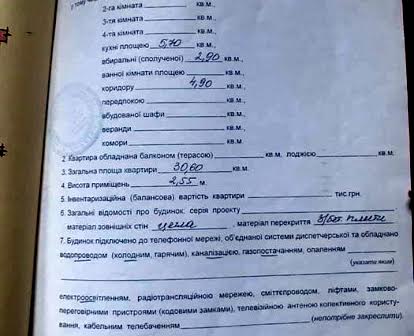 2-га кімната кв.м.,
3-тя кімната кв.м.
4-та кімната кв.м.
кухні площею 5,70 кв.м.,
вбиральні (сполученої) 2,90 кв.м.,
ванної кімнати площею кв.м.
коридору 4,90 кв.м.
передпокою кв.м.
вбудованої шафи кв.м.
веранди кв.м.
комори кв.м.
2. Квартира обладнана балконом (терасою) кв.м, лоджією кв.м.
3. Загальна площа квартири 30,60 кв.м.
4. Висота приміщень 2,55 м.
5. Інвентаризаційна (балансова) вартість квартири тис.грн.
6. Загальні відомості про будинок: серія проекту
матеріал зовнішніх стін цегла, матеріал перекриття з/бет. плити
7. Будинок підключено до телефонної мережі, об'єднаної системи диспетчерської та обладнано
водопроводом (холодним, гарячим), каналізацією, газопостачанням, опаленням
(указати яким)
електроосвітленням, радіотрансляційною мережею, сміттєпроводом, ліфтами, замково-
переговорними пристроями (кодовими замками), телевізійною антеною колективного користу-
вання, кабельним телебаченням (непотрібне закреслити).